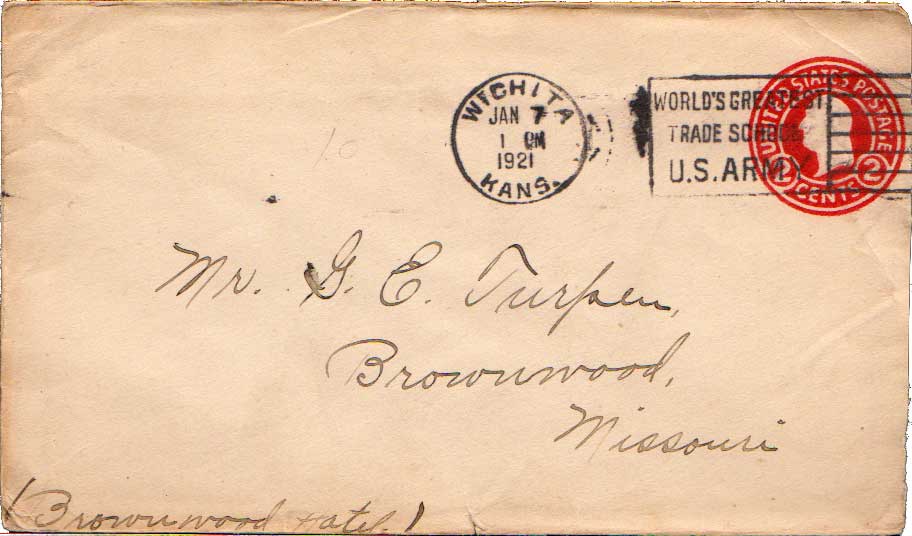 WICHITA
JAN 7
1 PM
1921
KANS.
WORLD'S GREATEST
TRADE SCHOOL
U.S. ARMY
UNITED STATES POSTAGE
2 CENTS 2
Mr. G. E. Turpen,
Brownwood,
Missouri
(Brownwood Hotel)